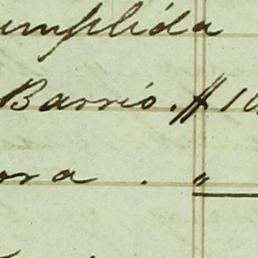 umplida
Barrio. $ 10
ora . "